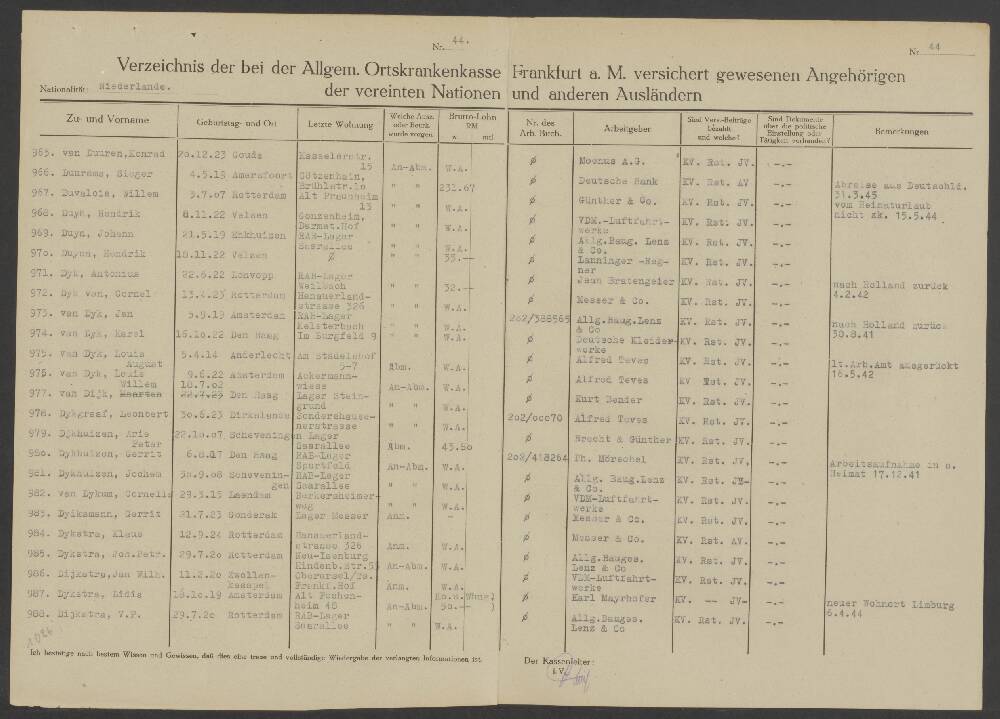 Nr. 44.
Nr. 44
Verzeichnis der bei der Allgem. Ortskrankenkasse Frankfurt a. M. versichert gewesenen Angehörigen
Nationalität: Niederlande.
der vereinten Nationen und anderen Ausländern
Zu- und Vorname | Geburtstag- und Ort | Letzte Wohnung | Welche Ausw. oder Beurk. wurde vorgen. | Brutto-Lohn RM w. mtl. | Nr. des Arb. Buch. | Arbeitgeber | Sind Vers.-Beiträge bezahlt und welche? | Sind Dokumente über die politische Einstellung oder Tätigkeit vorhanden? | Bemerkungen
965. van Duuren,Konrad 20.12.23 Gouda Kasselerstr. 15 An-Abm. W.A. ø Moenus A.G. KV. Rst. JV. -.-
966. Duurams, Sieger 4.5.19 Amersfoort Götzenhain, Brühlstr.10 " " 231.67 ø Deutsche Bank KV. Rst. AV -.- Abreise aus Deutschld. 31.3.45
967. Duvalois, Willem 3.7.07 Rotterdam Alt Praunheim 13 " " W.A. ø Günther & Co. KV. Rst. JV. -.- vom Heimaturlaub nicht zk. 15.5.44
968. Duyn, Hendrik 8.11.22 Velsen Gonzenheim, Darmst.Hof " " W.A. ø VDM.-Luftfahrt-werke KV. Rst. JV. -.-
969. Duyn, Johann 21.5.19 Enkhuizen RAB-Lager Saarallee " " W.A. ø Allg.Baug. Lenz & Co. KV. Rst. JV. -.-
970. Duyns, Hendrik 18.11.22 Velsen ø " " 35.-- ø Lanninger -Reg-ner KV. Rst. JV. -.-
971. Dyk, Antonius 22.6.22 RAB-Lager Weilbach " " 32.-- ø Jean Bratengeier KV. Rst. JV. -.- nach Holland zurück 4.2.42
972. Dyk van, Cornel 13.4.23 Rotterdam Hanauerland-strasse 326 ø Messer & Co. KV. Rst. JV. -.-
973. van Dyk, Jan 5.9.19 Amsterdam RAB-Lager Kelsterbach " " W.A. 262/388565 Allg.Baug.Lenz & Co KV. Rst. JV. -.- nach Holland zurück 30.8.41
974. van Dyk, Karel 16.10.22 Den Haag Im Burgfeld 9 " " W.A. ø Deutsche Kleider-werke KV. Rst. JV. -.-
975. van Dyk, Louis August 5.4.14 Anderlecht Am Stadelshof 5-7 Abm. W.A. ø Alfred Teves KV. Rst. JV. -.- lt.Arb.Amt ausgerückt 16.5.42
976. van Dyk, Louis Willem 9.6.22 Amsterdam Ackermann-wiese An-Abm. W.A. ø Alfred Teves KV Rst. JV. -.-
977. van Dijk, Maarten 18.7.02 Den Haag Lager Stein-grund " " W.A. ø Kurt Bender KV. Rst. JV. -.-
978. Dykgraaf, Leonbert 30.6.23 Dirksland Sondershause-nerstrasse " " W.A. 202/ccc70 Alfred Teves KV. Rst. JV. -.-
979. Dykhuizen, Arie Peter 22.10.07 Scheveningen Lager Saarallee Abm. 43.80 ø Brecht & Günther KV. Rst. JV. -.-
980. Dykhuizen, Gerrit 6.8.17 Den Haag RAB-Lager Sportfeld An-Abm. W.A. 202/418264 Ph. Mörschel KV. Rst. JV, -.- Arbeitsaufnahme in d. Heimat 17.12.41
981. Dykhuizen, Jochem 30.9.08 Schevenin-gen RAB-Lager Saarallee " " W.A. ø Allg. Baug.Lenz & Co. KV. Rst. JV- -.-
982. van Eykum, Cornelis 29.3.15 Leendam Berkersheimer-weg " " W.A. ø VDM-Luftfahrt-werke KV. Rst. JV. -.-
983. Dyiksmann, Gerrit 21.7.23 Gonderak Lager Messer Anm. - ø Messer & Co. KV. Rst. JV. -.-
984. Dykstra, Klaus 12.9.24 Rotterdam Hanauerland-strasse 326 Anm. W.A. ø Messer & Co. KV. Rst. AV. -.-
985. Dykstra, Joh.Petr. 29.7.20 Rotterdam Neu-Isenburg Hindenb.Str.5 An-Abm. W.A. ø Allg.Bauges. Lenz & Co KV. Rst. JV. -.-
986. Dijkstra,Jan Wilh. 11.2.20 Zwollen- Oberursel/Ts. Frankf.Hof Anm. W.A. ø VDM-Luftfahrt-werke KV. Rst. JV. -.-
987. Dykstra, Lidia 18.10.19 Amsterdam Alt Fechen-heim 48 An-Abm. Ko.u.Whng) 50.-- ) ø Karl Mayrhofer KV. -- JV- -.- neuer Wohnort Limburg 6.4.44
988. Dijkstra, V.P. 29.7.20 Rotterdam RAB-Lager Saarallee " " W.A. ø Allg.Bauges. Lenz & Co KV. Rst. JV. -.-
1026
Ich bestätige nach bestem Wissen und Gewissen, daß dies eine treue und vollständige Wiedergabe der verlangten Informationen ist.
Der Kassenleiter:
i.V.